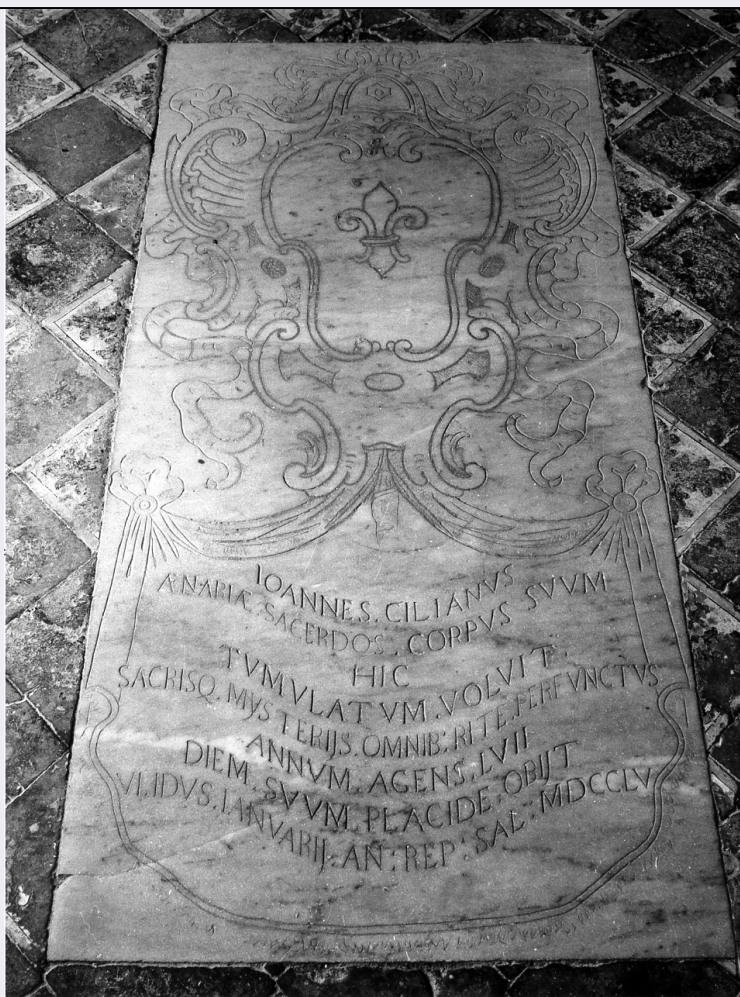 IOANNES. CILIANVS
ÆNARIÆ. SACERDOS. CORPVS SVVM
HIC
TVMVLATVM. VOLVIT.
SACRISQ. MYSTERIJS. OMNIB: RITE. PERFVNCTVS
ANNVM. AGENS. LVII
DIEM. SVVM. PLACIDE. OBIJT
VI. IDVS. IANVARIJ. AN: REP: SAL: MDCCLV